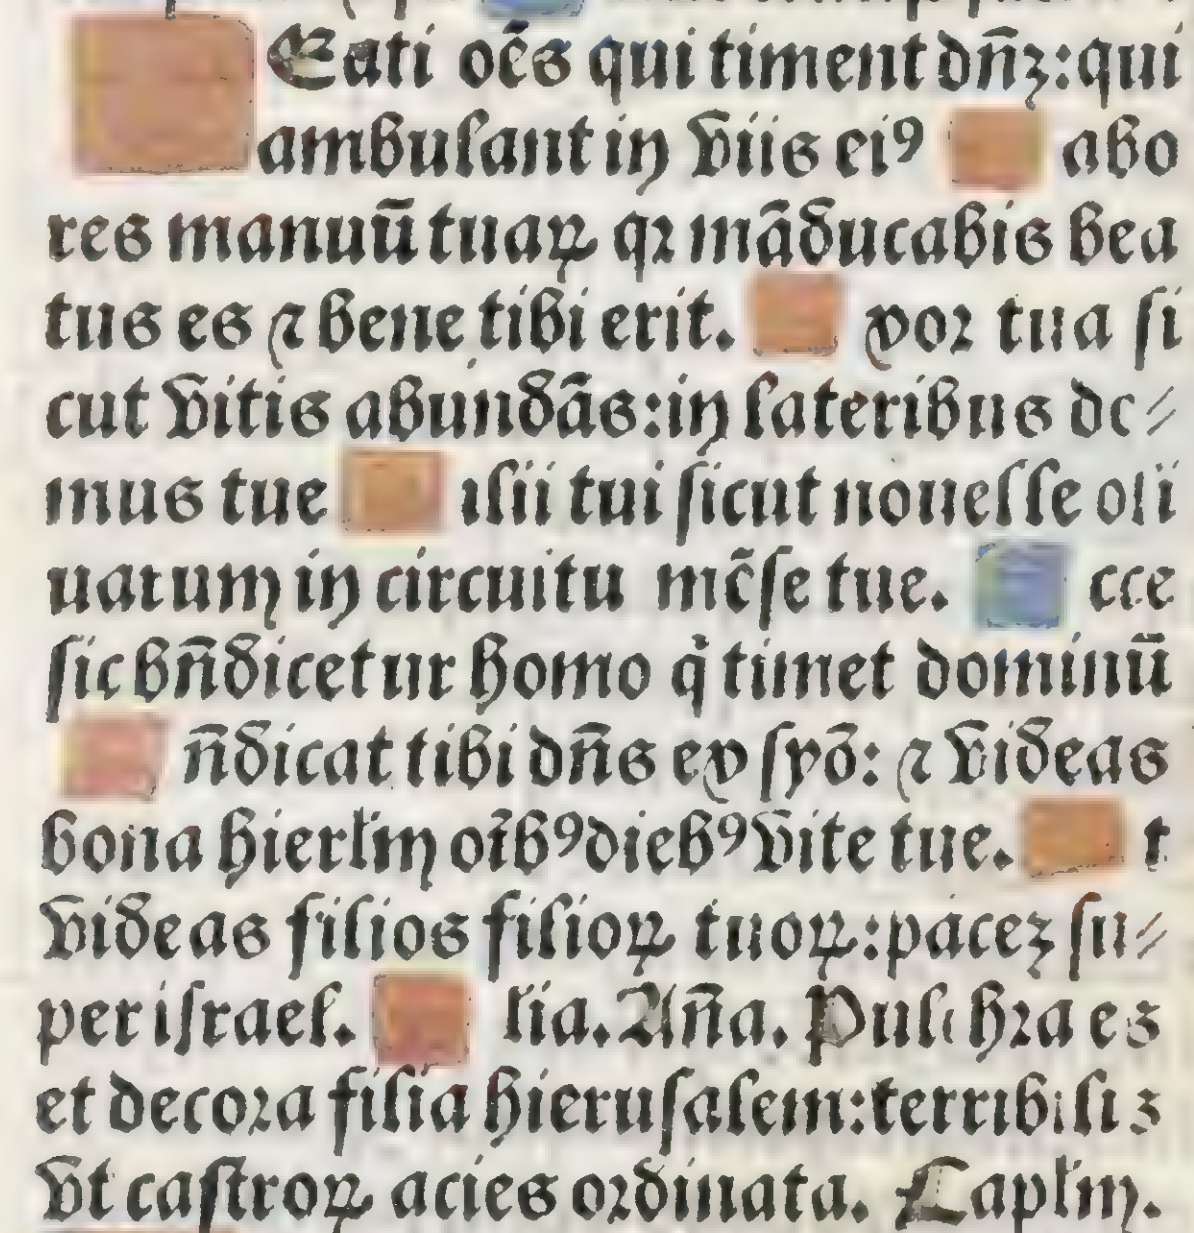 Eati oēs qui timent dn̄ꝫ: qui
ambulant in viis eiꝰ abo
res manuū tuaꝝ qꝛ mãducabis bea
tus es ⁊ bene tibi erit. xoꝛ tua ſi
cut vitis abundãs: in lateribus do⸗
mus tue ilii tui ſicut nouelle oli
uarum in circuitu mēſe tue. cce
ſic bn̄dicetur homo q̇ timet dominū
n̄dicat tibi dn̄s ex ſyõ: ⁊ videas
bona hierłm oībꝰ diebꝰ vite tue. t
videas filios filioꝝ tuoꝝ: paceꝫ ſu⸗
per iſrael. lia. Aña. Pulchꝛa es
et decoꝛa filia hieruſalem: terribilis
vt caſtroꝝ acies oꝛdinata. Capłm.